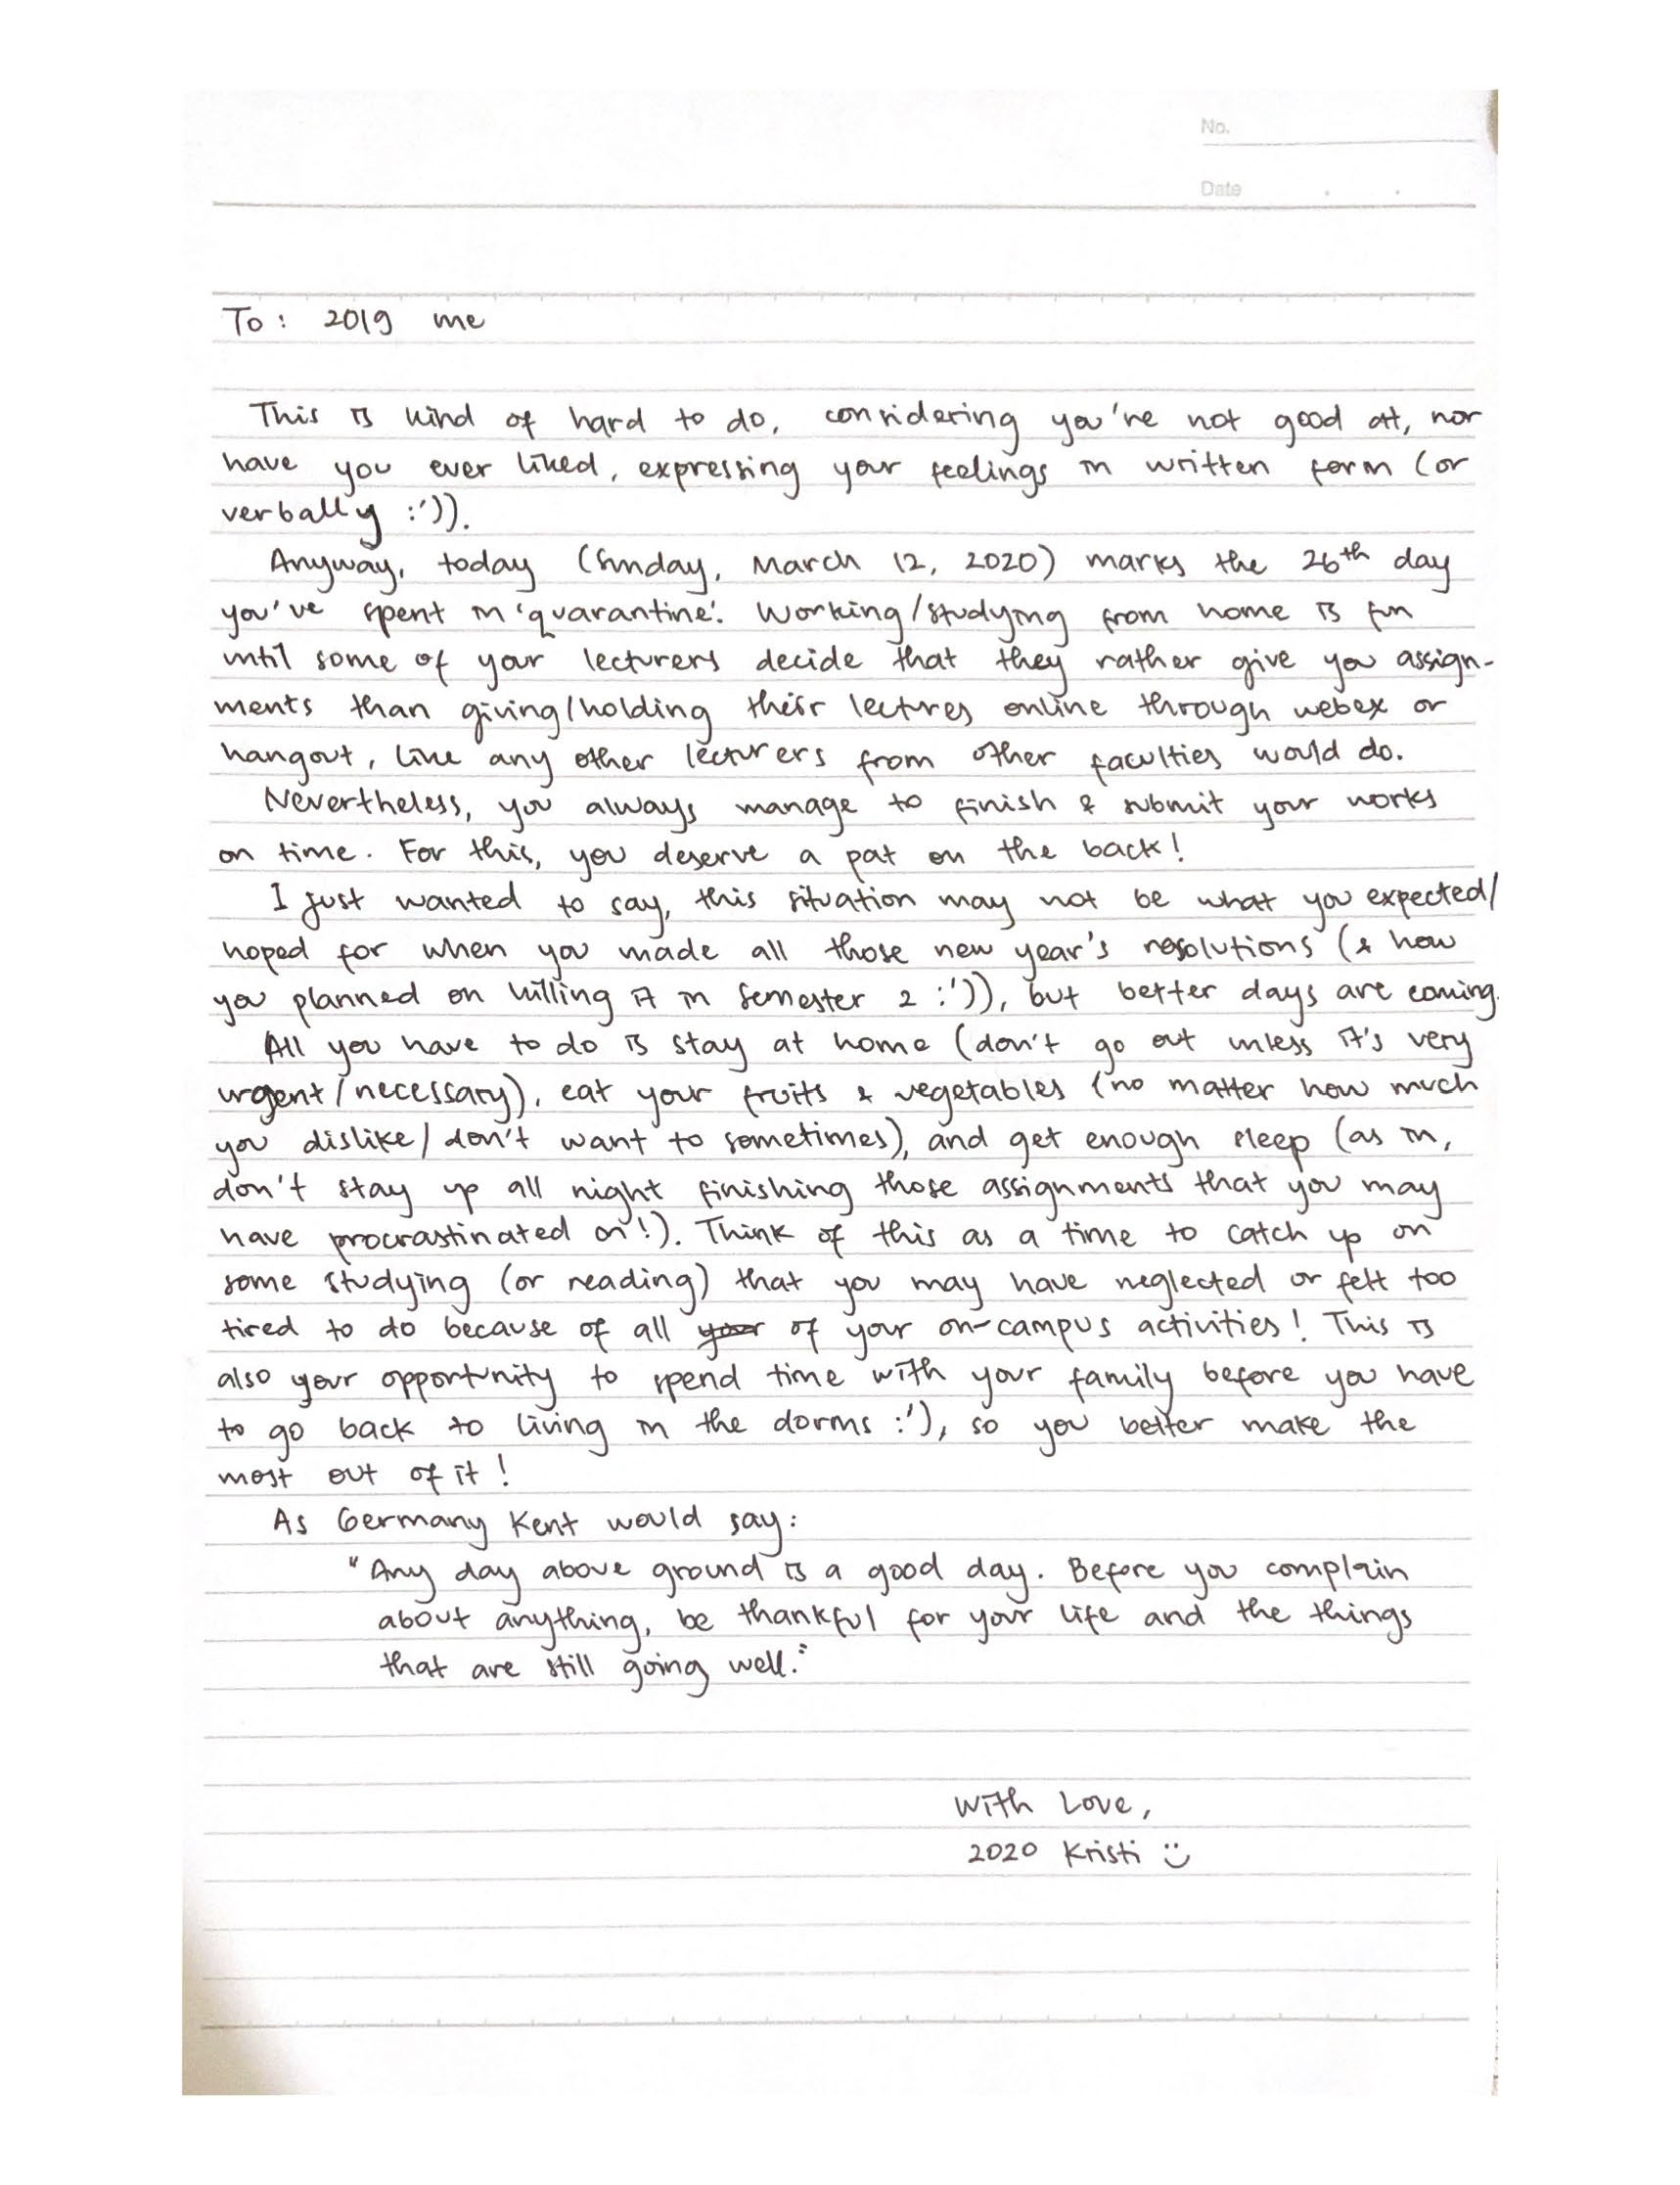 No.
Date
To: 2019 me
This is kind of hard to do, considering you're not good at, nor
have you ever liked, expressing your feelings in written form (or
verbally :')).
Anyway, today (Sunday, March 12, 2020) marks the 26th day
you've spent in 'quarantine'. Working/studying from home is fun
until some of your lecturers decide that they rather give you assign-
ments than giving/holding their lectures online through webex or
hangout, like any other lecturers from other faculties would do.
Nevertheless, you always manage to finish & submit your works
on time. For this, you deserve a pat on the back!
I just wanted to say, this situation may not be what you expected/
hoped for when you made all those new year's resolutions (& how
you planned on killing it in semester 2 :')), but better days are coming.
All you have to do is stay at home (don't go out unless it's very
urgent/necessary), eat your fruits & vegetables (no matter how much
you dislike/don't want to sometimes), and get enough sleep (as in,
don't stay up all night finishing those assignments that you may
have procrastinated on!). Think of this as a time to catch up on
some studying (or reading) that you may have neglected or felt too
tired to do because of all your of your on-campus activities! This is
also your opportunity to spend time with your family before you have
to go back to living in the dorms :'), so you better make the
most out of it!
As Germany Kent would say:
"Any day above ground is a good day. Before you complain
about anything, be thankful for your life and the things
that are still going well."
With Love,
2020 Kristi :)